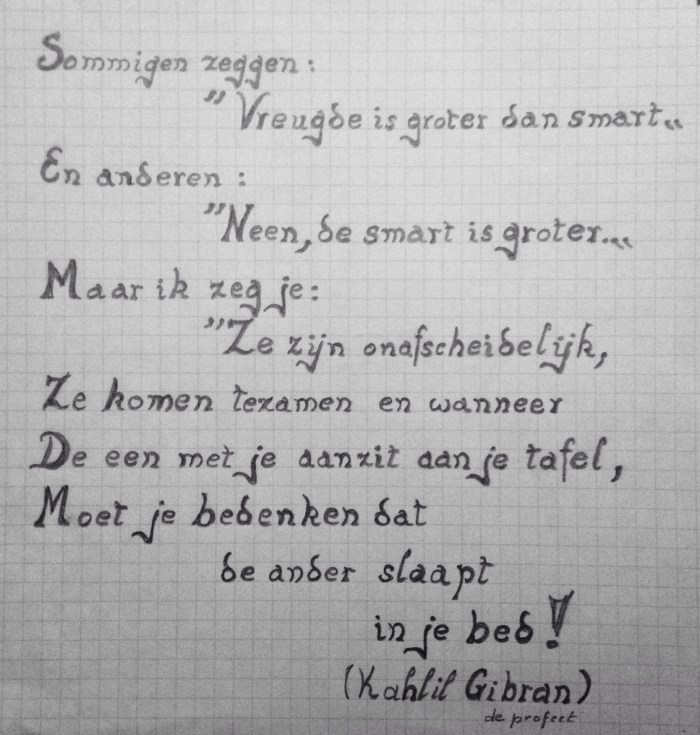 Sommigen zeggen:
"Vreugde is groter dan smart„
En anderen :
"Neen, de smart is groter...„
Maar ik zeg je:
"Ze zijn onafscheidelijk,
Ze komen tezamen en wanneer
De een met je aanzit aan je tafel,
Moet je bedenken dat
de ander slaapt
in je bed!
(Kahlil Gibran)
de profeet